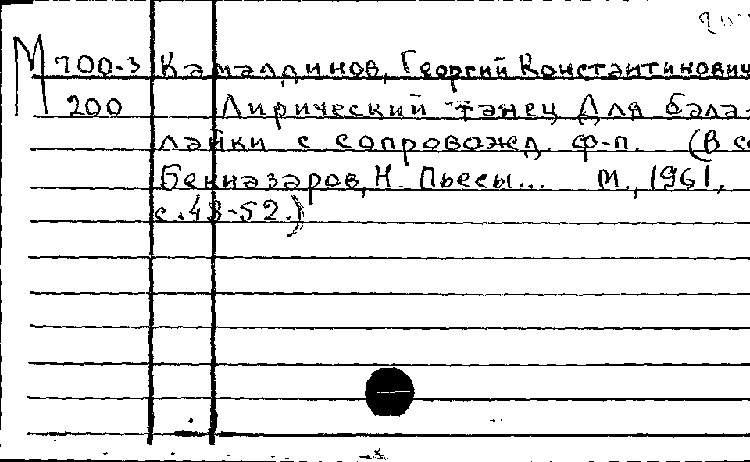 М 700-3 Камалдинов, Георгий Константинович
200 Лирический танец для бала-
лайки с сопровожд. ф-п. (В сб
Бекназаров, Н. Пьесы... М., 1961,
с. 48-52.)